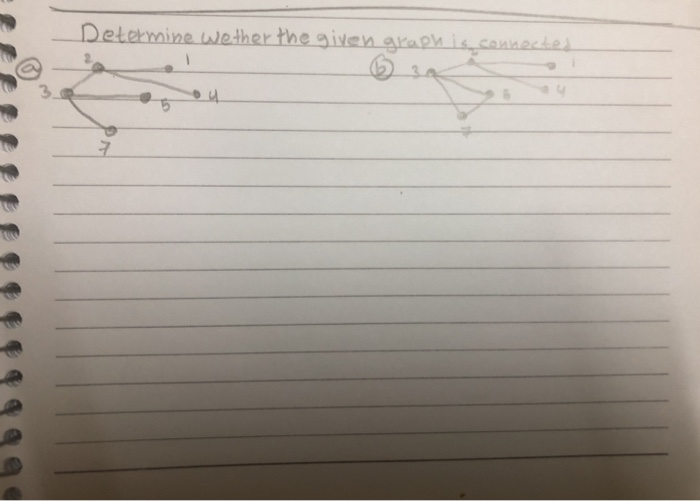 Determine wether the given graph is connected
a b
2 1 2 1
3 5 4 3 5 4
7 7